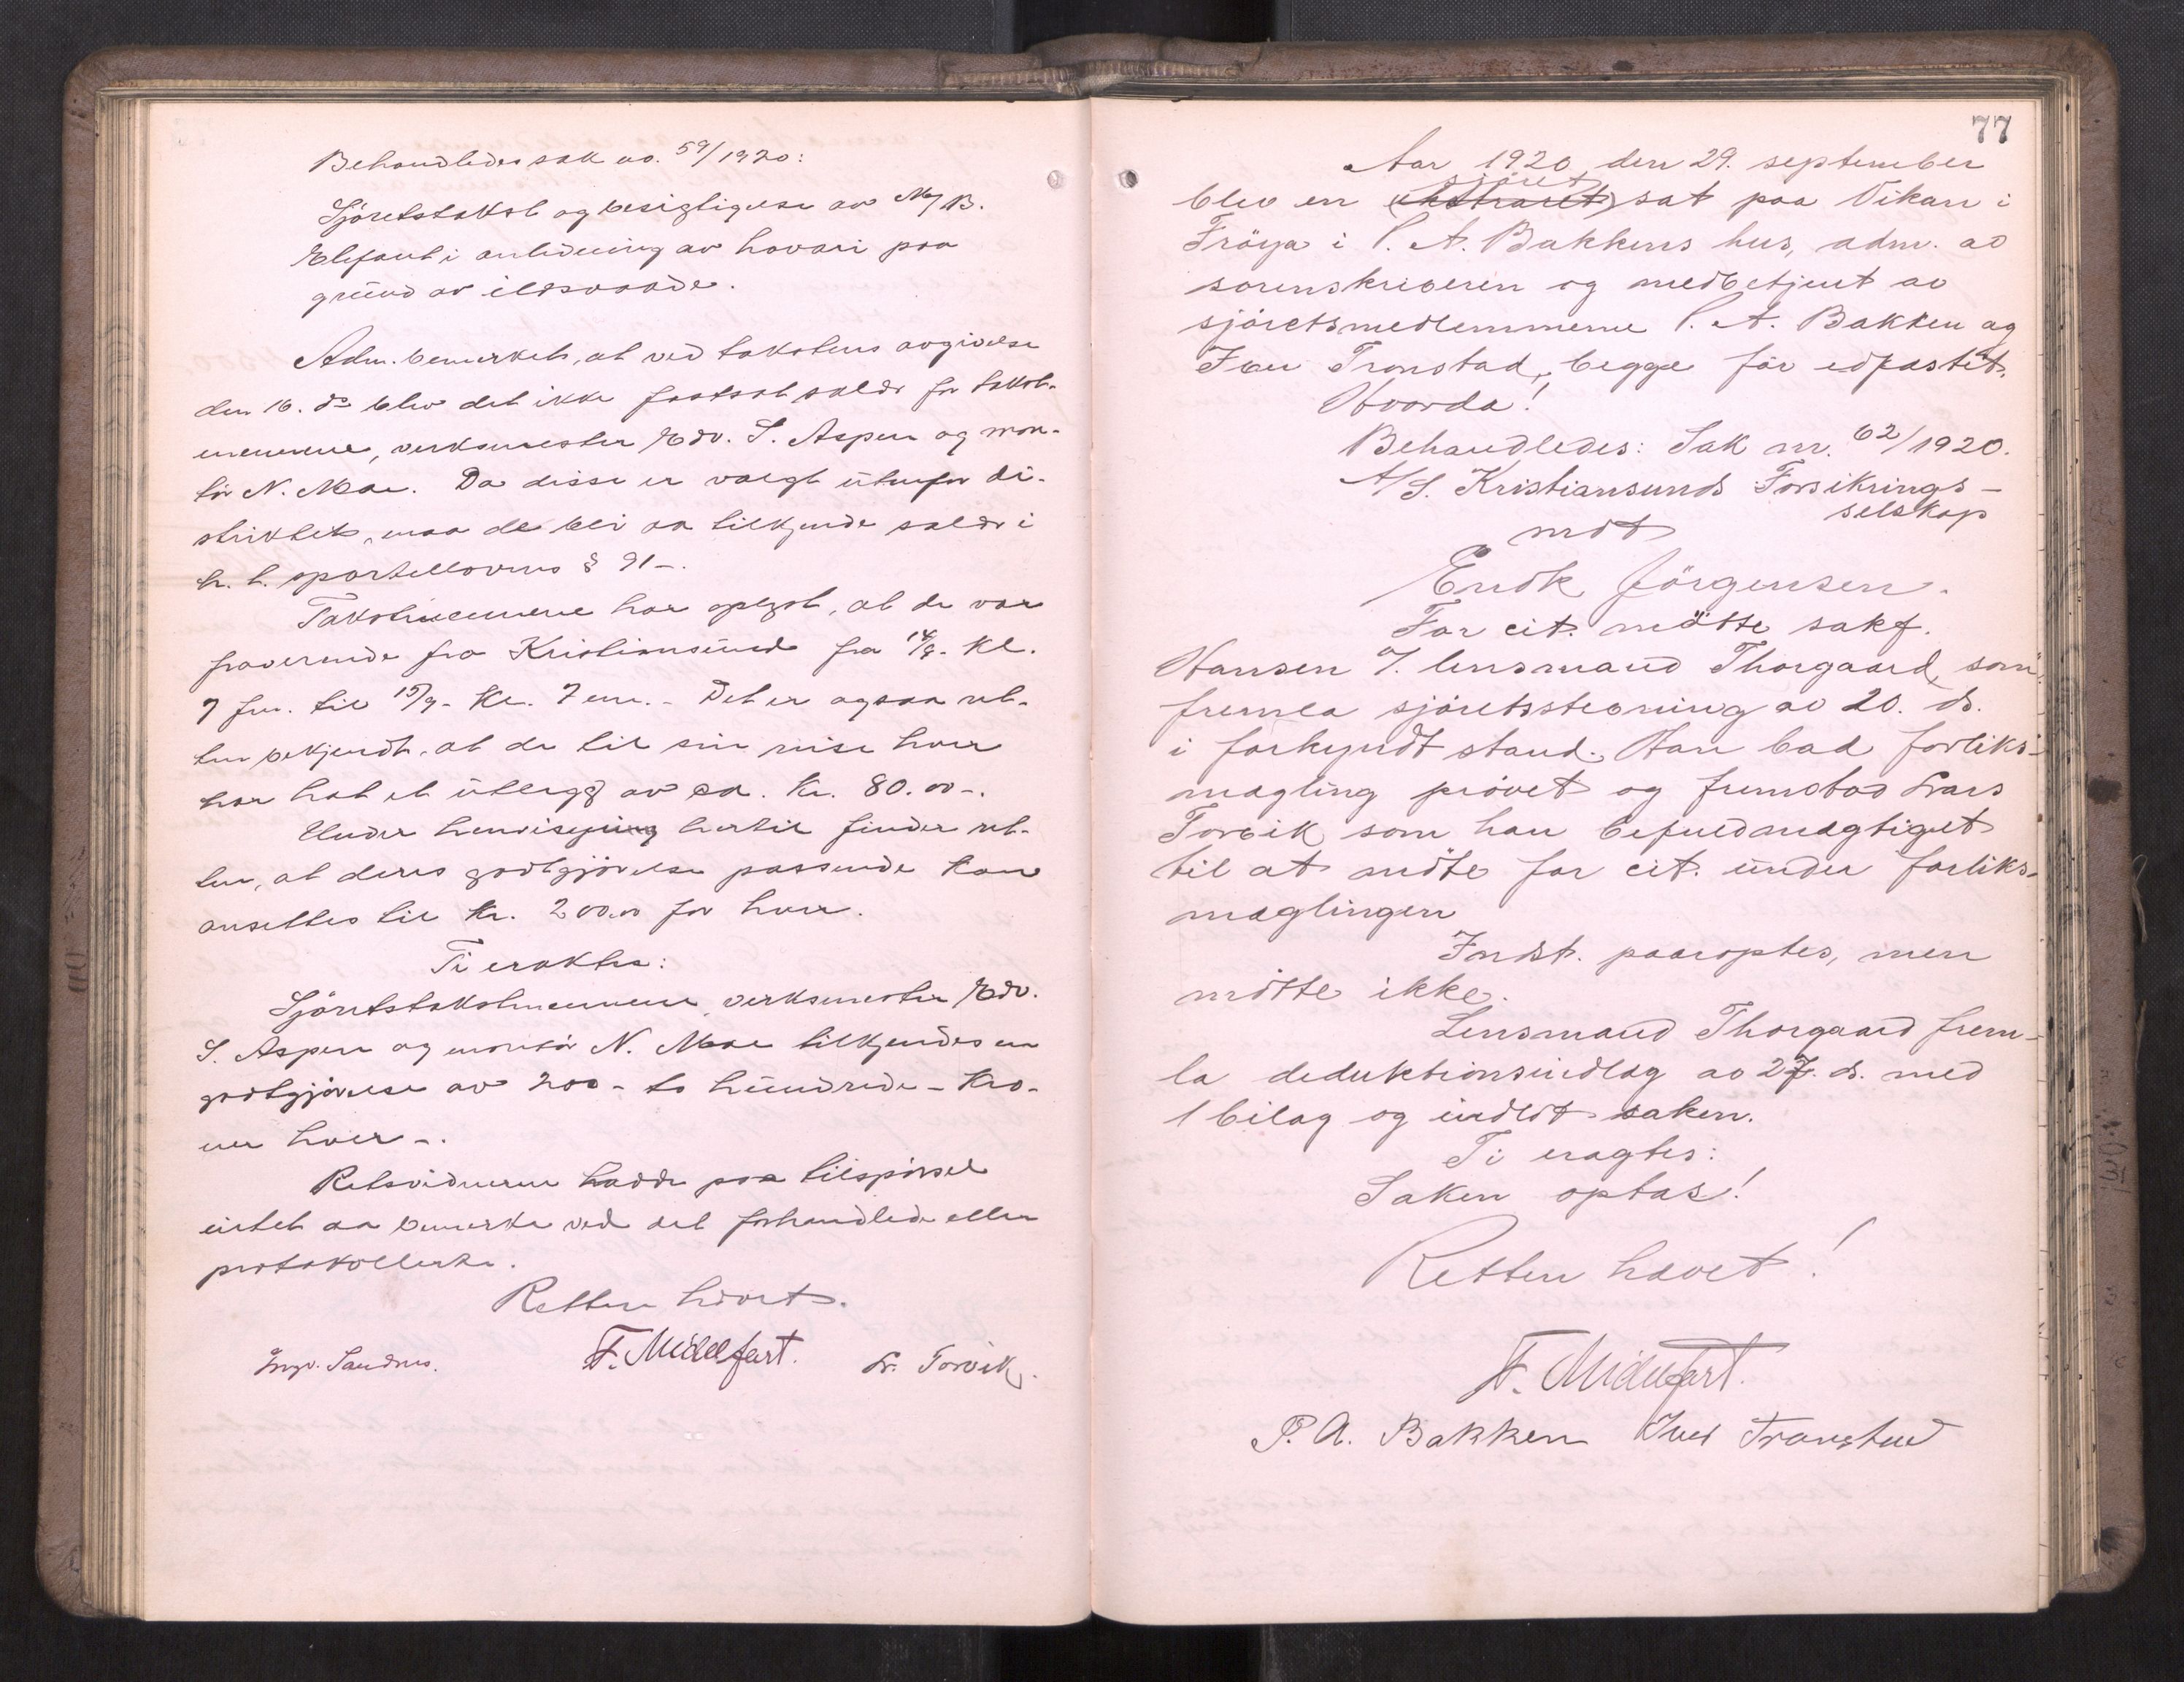 Behandledes sak no. 59/1920:
Sjöretstakst og besigtigelse av M/B.
Elefant i anledning av havari paa
grund av ildsvaade.
Adm. bemerket, at ved takstens avgivelse
den 16. ds blev det ikke fastsat salær for takst-
mennene, verksmester Edv. S. Aspen og mon-
tör N. Moe. Da disse er valgt utenfor di-
striktet, maa de bli aa tilkjende salær i
h. t. sportellovens § 91-.
Takstmennene har oplyst, at de var
fraværende fra Kristiansund fra 14/9. kl.
7 fm. til 15/9. kl. 7 em. - Det er ogsaa ret-
ten bekjendt, at de til sin reise hver
har hat et utlegg av ca. kr. 80.00-.
Under henvisning hertil finder ret-
ten, at deres godtgjörelse passende kan
ansettes til kr. 200.00 for hver.
Ti eraktes:
Sjöretstakstmennene, verksmester Edv.
S. Aspen og montör N. Moe tilkjendes en
godtgjörelse av 200 - to hundrede - kro-
ner hver -.
Retsvidnerne hadde paa tilspörsel
intet aa bemerke ved det forhandlede eller
protokollerte.
Retten hævet.
Ingv. Sandnes. F. Midelfart. Lr. Torvik.
77
Aar 1920 den 29. september
sjöret
blev en (ekstraret) sat paa Vikan i
Fröya i P. A. Bakkens hus, adm. av
sorenskriveren og medbetjent av
sjöretsmedlemmerne P. A. Bakken og
Iver Tronstad, begge för edfæstet.
Hvorda!
Behandledes: Sak nr. 62/1920.
A/S. Kristiansunds Forsikrings-
selskap
mot
Endk Jörgensen.
For cit. mötte sakf.
Hansen v. lensmand Thorgaard, som
fremla sjöretsstevning av 20. ds.
i forkyndt stand. Han bad forliks-
mægling prövet og fremstod Lars
Torvik som han befuldmægtiget
til at möte for cit. under forliks-
mæglingen
Indst. paaroptes, men
mötte ikke.
Lensmand Thorgaard frem-
la deduktionsindlæg av 27. ds. med
1 bilag og indlot saken.
Ti eragtes:
Saken optas!
Retten hævet!
F. Midelfart.
P. A. Bakken Iver Tronstad